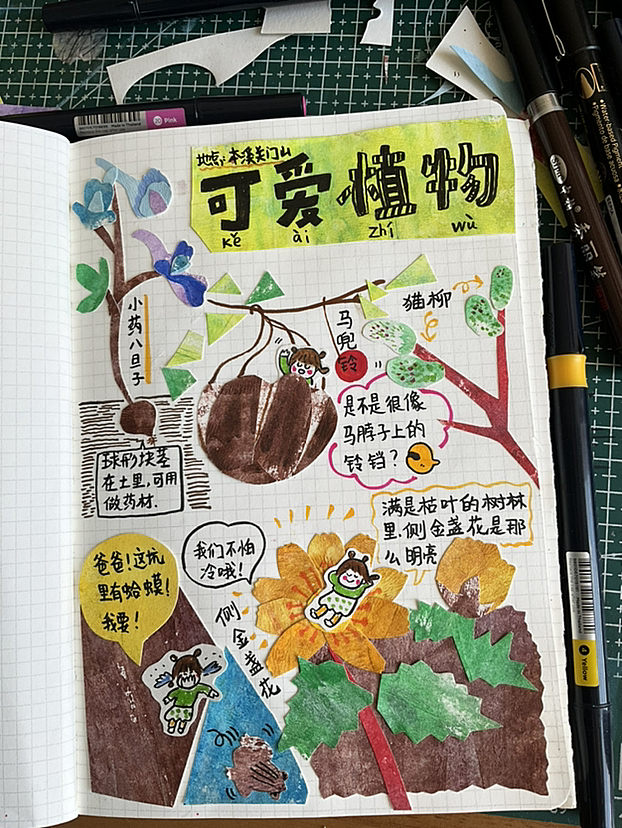 地点:本溪关门山
可爱植物
kě ài zhí wù
小药八旦子
球形块茎
在土里,可用
做药材.
马兜
铃
猫柳
是不是很像
马脖子上的
铃铛?
满是枯叶的树林
里.侧金盏花是那
么明亮
我们不怕
冷哦!
侧金盏花
爸爸!这坑
里有蛤蟆!
我要!
20 Pink
4 Yellow